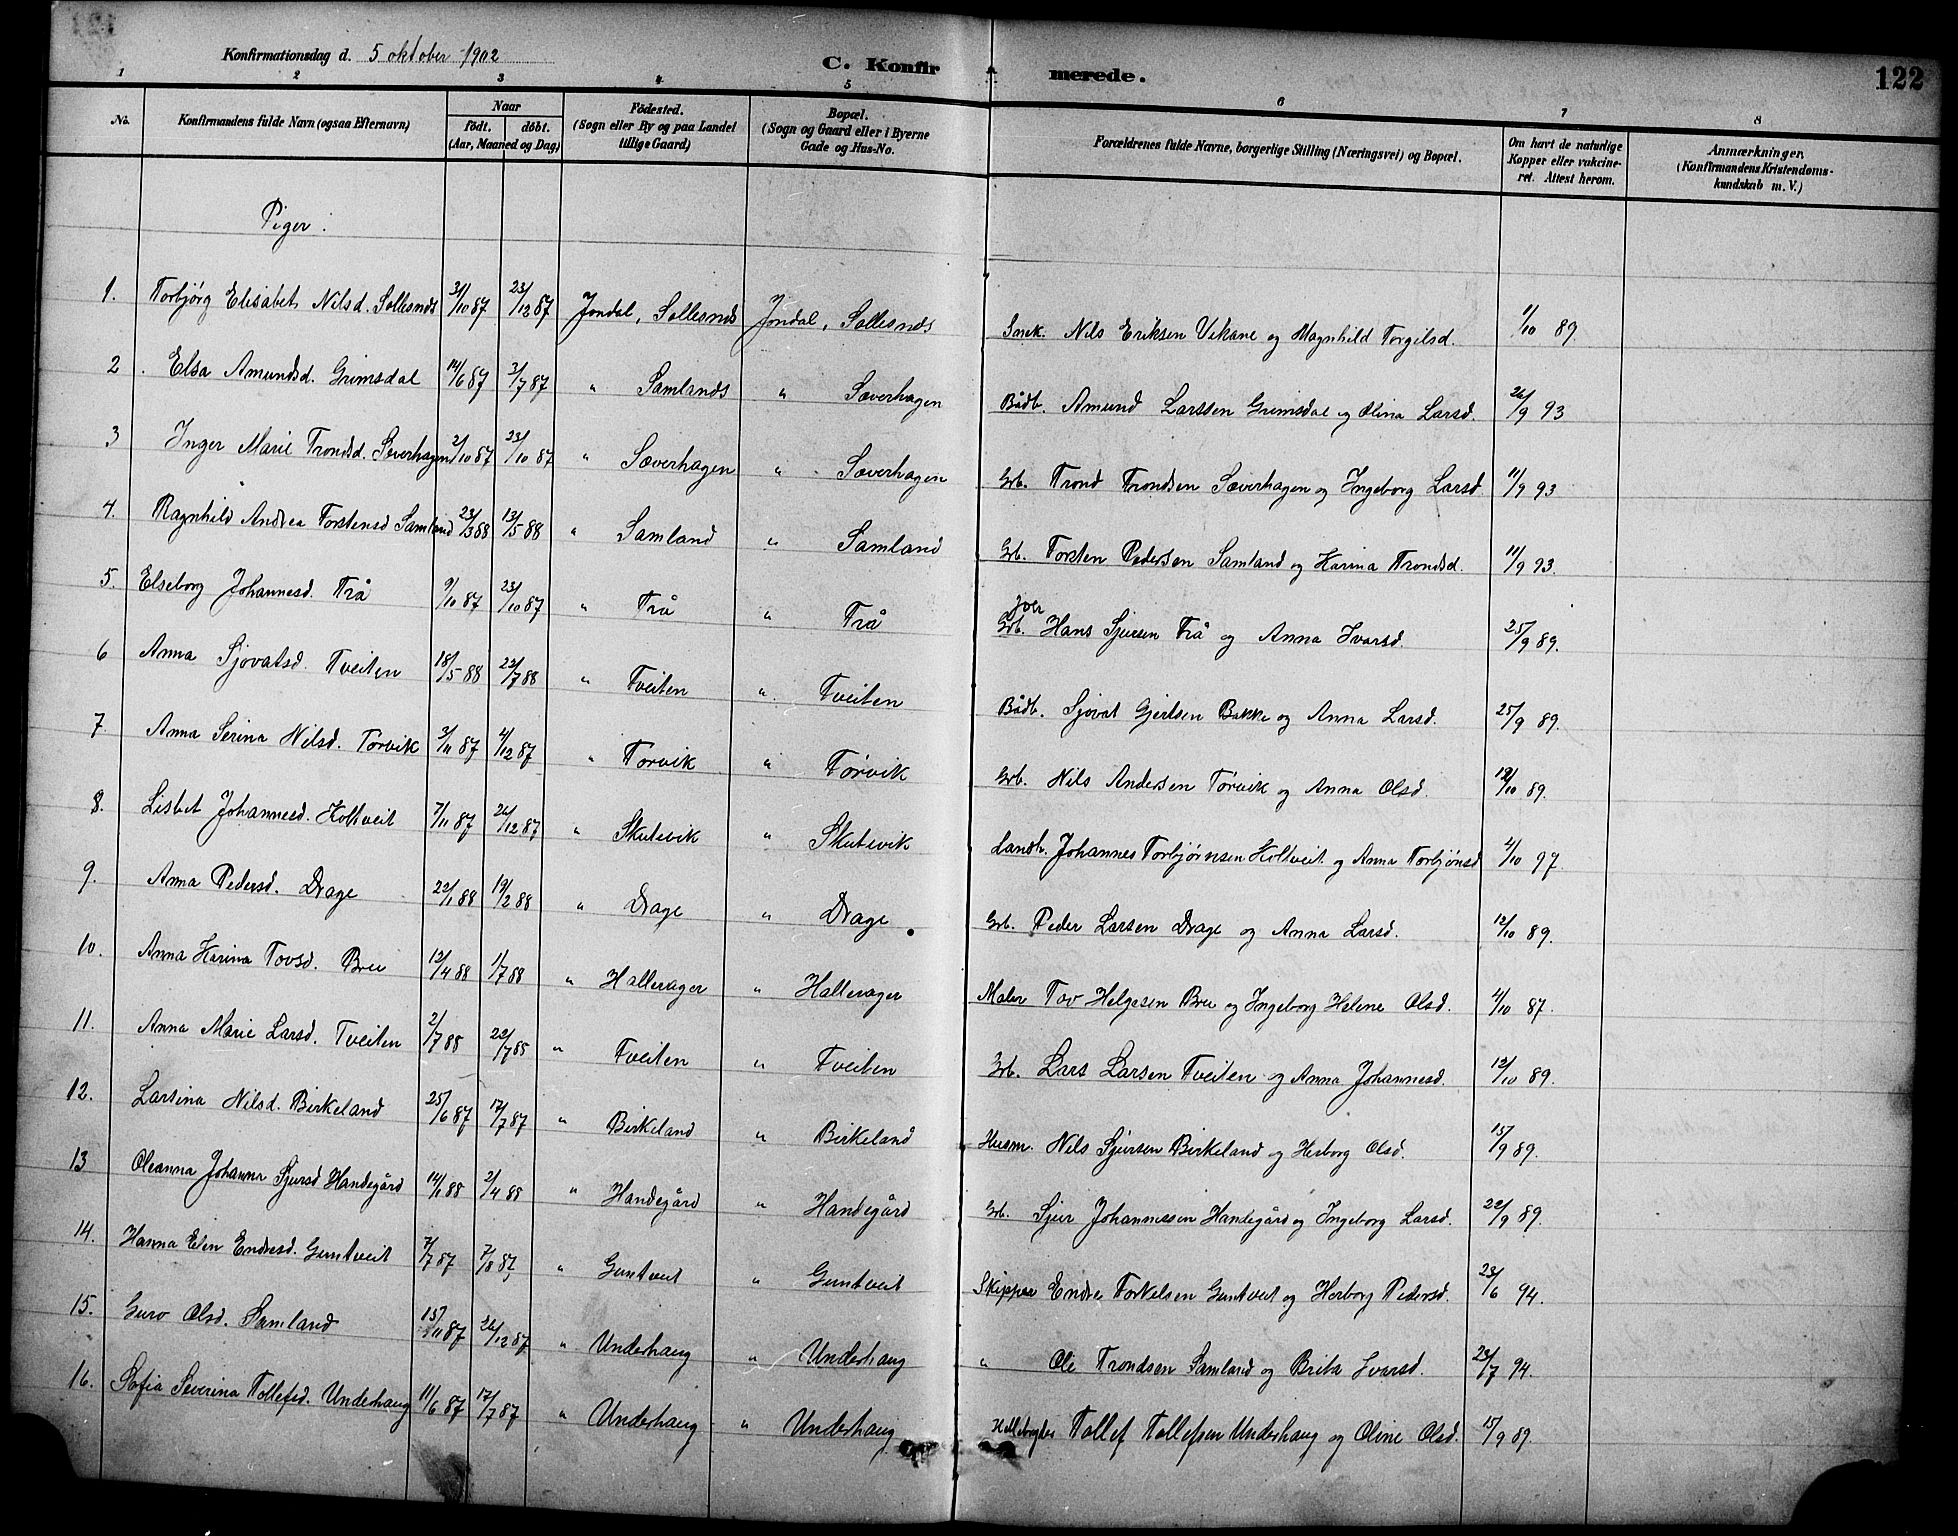 Konfirmationsdag d. 5 oktober 1902
C. Konfirmerede.
122
1 2 3 4 5 6 7 8
No. | Konfirmandens fulde Navn (ogsaa Efternavn) | Naar født. døbt. (Aar, Maaned og Dag) | Fødested. (Sogn eller By og paa Landet tillige Gaard) | Bopæl. (Sogn og Gaard eller i Byerne Gade og Hus-No. | Forældrenes fulde Navne, borgerlige Stilling (Næringsvei) og Bopæl. | Om havt de naturlige Kopper eller vakcineret. Attest herom. | Anmærkninger. (Konfirmandens Kristendomskundskab m. V.)
Piger.
1. Torbjørg Elisabet Nilsd. Sollesnes 31/10 87 23/12 87 Jondal, Sollesnes Jondal, Sollesnes Snek. Nils Eriksen Vikane og Magnhild Torgilsd. 1/10 89.
2. Elsa Amundsd. Grimsdal 14/6 87 3/7 87 " Samlands " Sæverhagen Bådb. Amund Larssen Grimsdal og Olina Larsd. 26/9 93
3 Inger Marie Trondsd. Severhagen 2/10 87 23/10 87 " Sæverhagen " Sæverhagen Grb. Trond Trondsen Sæverhagen og Ingeborg Larsd 11/9 93
4. Ragnhild Andrea Torstensd Samland 23/3 88 13/5 88 " Samland " Samland Grb. Torsten Pedersen Samland og Karina Trondsd. 11/9 93.
5. Elseborg Johannesd. Trå 9/10 87 23/10 87 " Trå " Trå Grb. Hans Sjursen Trå og Anna Ivarsd. 25/9 89.
6 Anna Sjovatsd. Tveiten 18/5 88 22/7 88 " Tveiten " Tveiten Bådb. Sjovat Gjertsen Bakke og Anna Larsd. 25/9 89.
7. Anna Serina Nilsd. Torvik 3/11 87 4/12 87 " Torvik " Tørvik Grb. Nils Andersen Tørvik og Anna Olsd. 12/10 89.
8. Lisbet Johannesd. Holtveit 7/11 87 26/12 87 " Skutevik " Skutevik Landh. Johannes Torbjørnsen Holtveit og Anna Torbjønsd 4/10 97.
9. Anna Pedersd. Drage 22/1 88 19/2 88 " Drage " Drage Grb. Peder Larsen Drage og Anna Larsd. 12/10 89.
10. Anna Karina Tovsd. Brei 12/4 88 1/7 88 " Hallerager " Hallerager Maler Tov Helgesen Brei og Ingeborg Helene Olsd. 4/10 87.
11. Anna Marie Larsd. Tveiten 2/7 88 22/7 88 " Tveiten " Tveiten Grb. Lars Larsen Tveiten og Anna Johannesd. 12/10 89.
12. Larsina Nilsd. Birkeland 25/6 87 17/7 87 " Birkeland " Birkeland Husm. Nils Sjursen Birkeland og Herborg Olsd. 15/9 89.
13 Oleanna Johanna Sjursd Handegård 14/1 88 2/4 88 " Handegård " Handegård Grb. Sjur Johannessen Handegård og Ingeborg Larsd. 22/9 89.
14. Hanna Elen Endresd. Guntveit 7/7 87 7/8 87 " Guntveit " Guntveit Skipper Endre Torkelsen Guntveit og Herborg Pedersd. 23/6 94.
15. Guro Olsd. Samland 15/11 87 26/12 87 " Underhaug " Underhaug " Ole Trondsen Samland og Brita Ivarsd. 23/7 94.
16. Sofia Severina Tollefsd. Underhaug 11/6 87 17/7 87 " Underhaug " Underhaug Tollef Tollefsen Underhaug og Oline Olsd. 15/9 89.